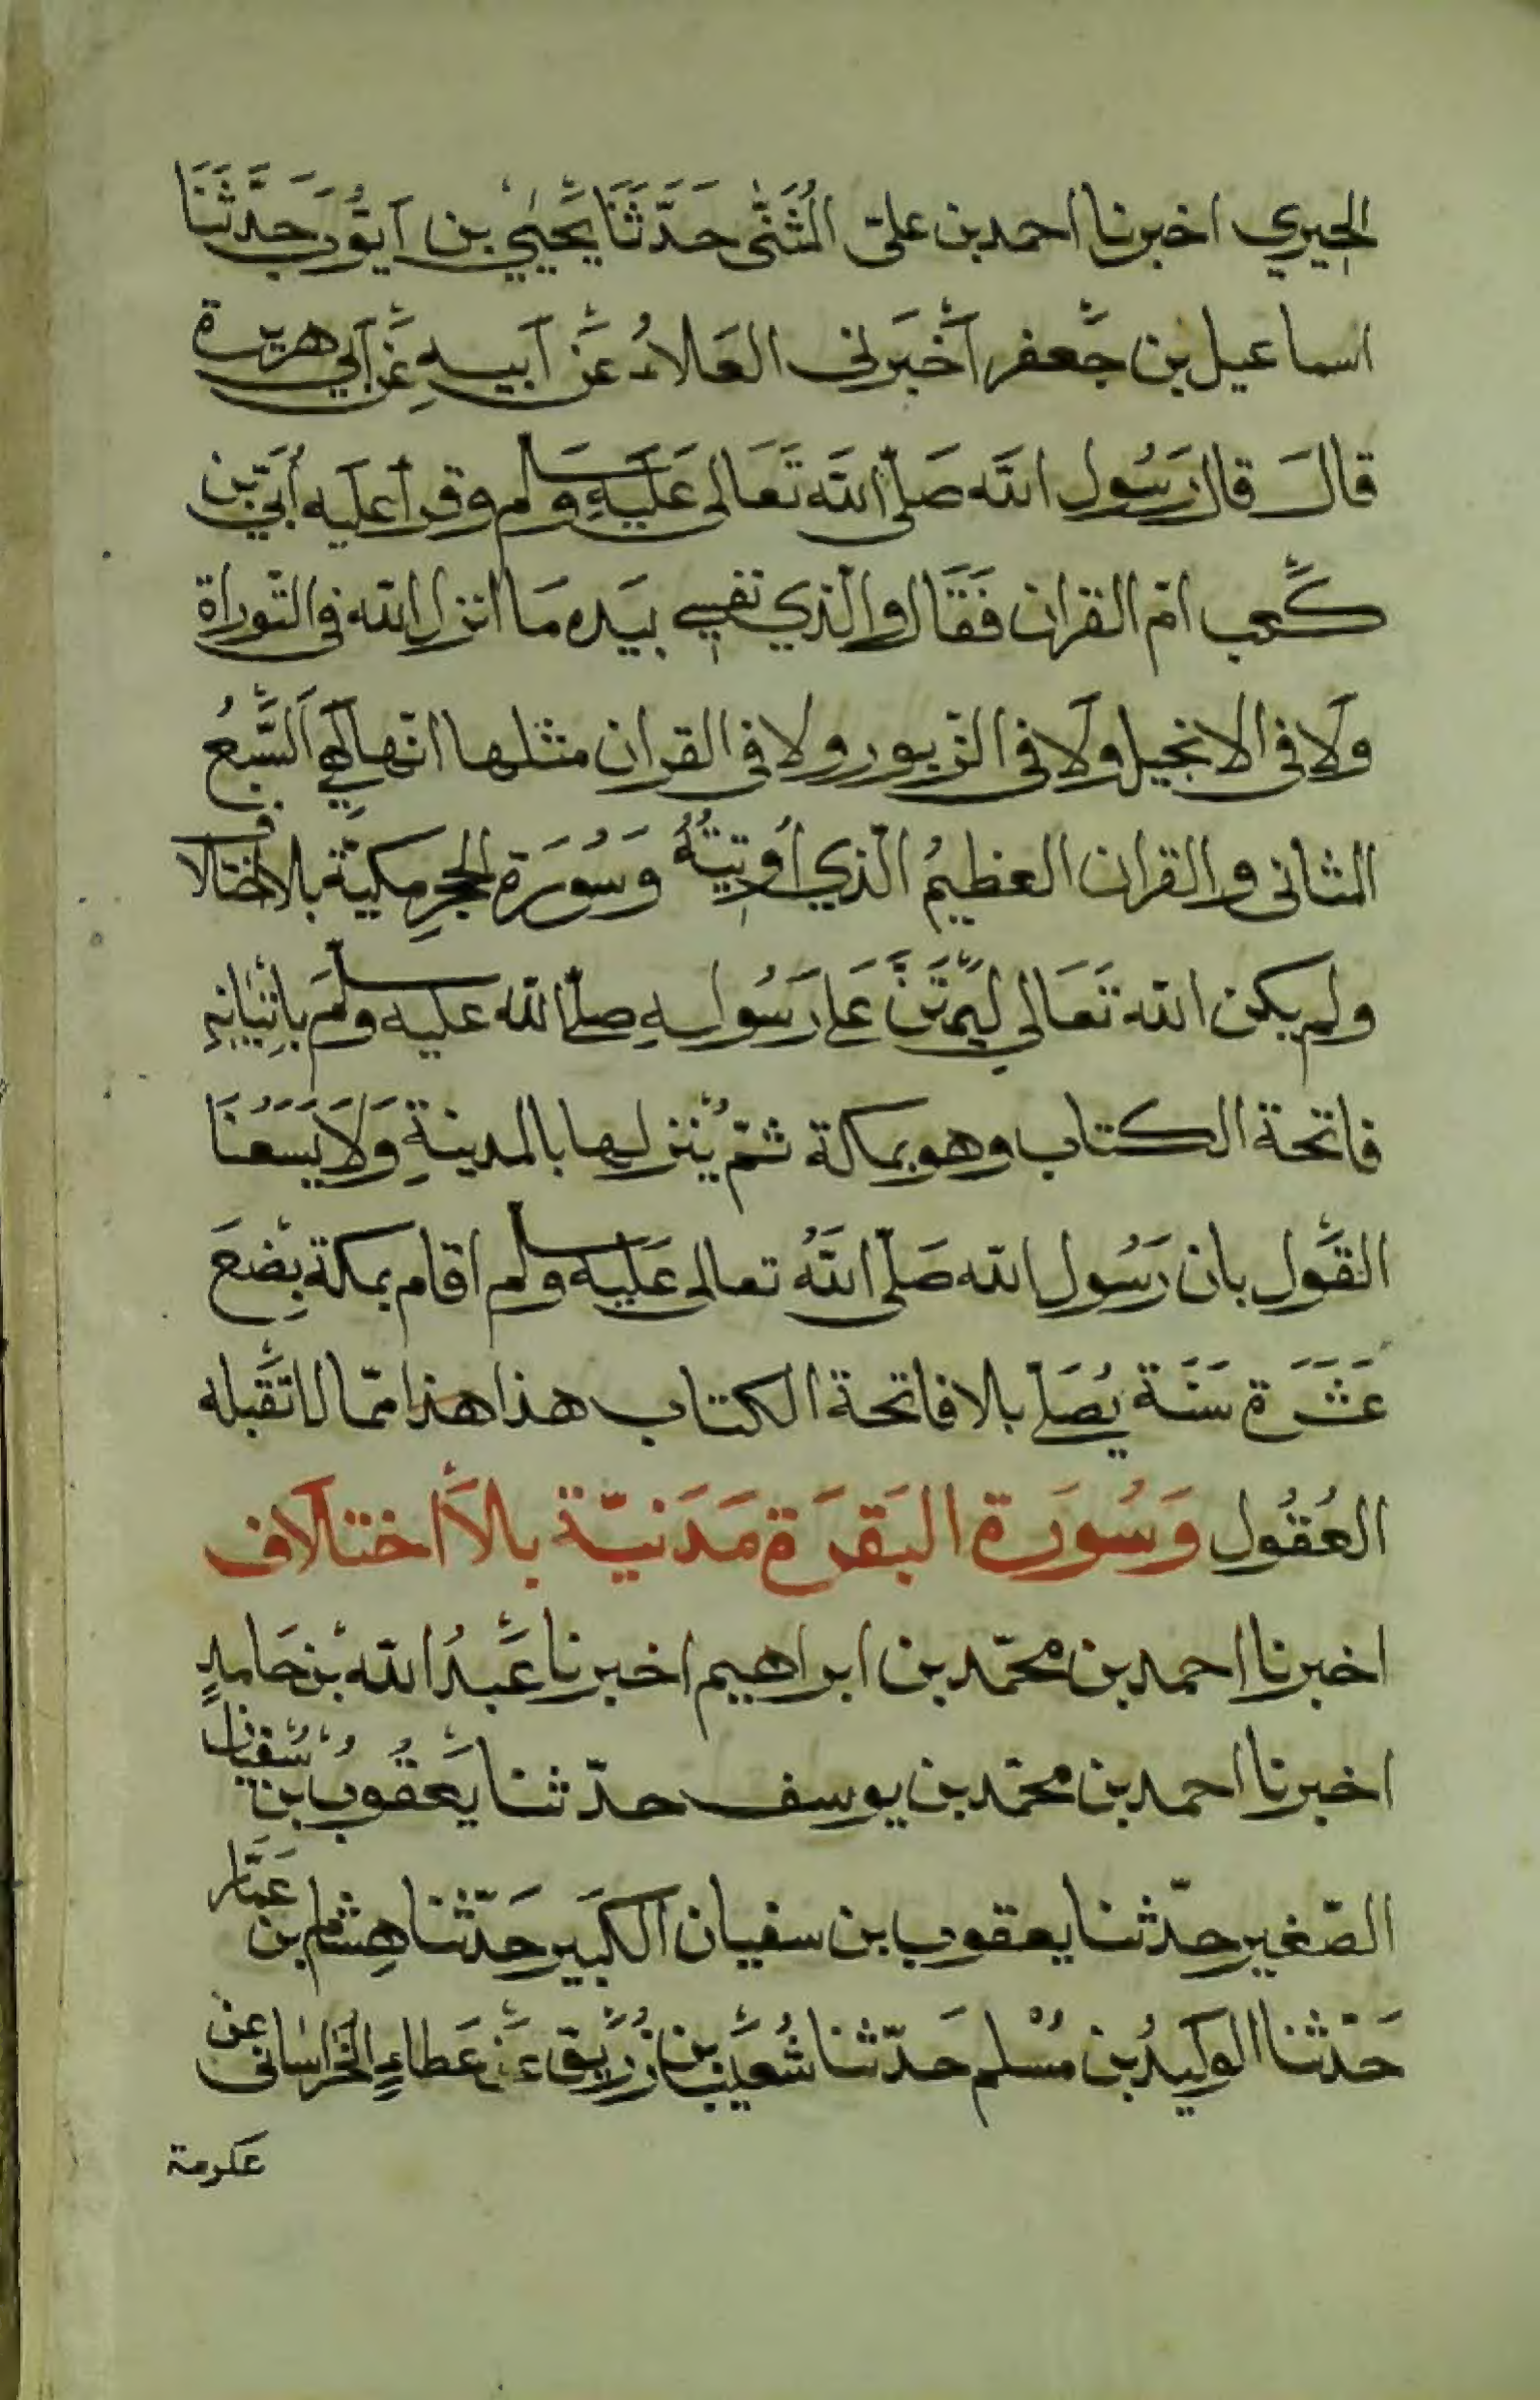 الحِيري اخبرنا احمد بن علىّ المُثَنّٰى حَدَّثَنَا يَحْيٰي بن اَيّوُب حَدَّثَنَا
اسماعيل بن جَعْفر اَخْبَرَنى العَلاءُ عَنْ اَبيهِ عَنْ اَبي هريرة
قالَ قال رَسُول الله صَلّى الله تَعَالى عَلَيْهِ وسَلم وقرأ عليه أُبَيّ بن
كَعْب امّ القران فَقَال والّذي نفسِي بيَده مَا انزل الله فى التّوراة
وَلَا فى الانجيل وَلَا فى الزّبور ولا فى القران مثلها انّها لَهِيَ السَّبْعُ
المثانى والقران العظيمُ الّذي أُوتِيتُهُ وَسُورَة الحجرِ مكيّة بلا اختلاف
ولم يكن الله تَعَالى لِيَمْتَنَّ عَلى رَسُولهِ صلّى الله عليه وسلمَ بِاِتْيَانِهِ
فاتحة الكتاب وهو بمكة ثمّ يُنزلها بالمدينةِ وَلَا يَسَعُنَا
القَوْل بان رَسُول الله صَلّى اللهُ تعالى عَلَيْه وسلم اقام بمكة بِضْعَ
عَشَرَة سَنَة يُصَلّي بلا فاتحة الكتاب هذا هذا ممّا لا تَقْبله
العُقُول وَسُورَة البَقَرَة مَدَنيّة بلاَ اختلاف
اخبرنا احمد بن محمّد بن ابراهيم اخبرنا عَبْدُ الله بن حَامدٍ
اخبرنا احمد بن محمّد بن يوسف حدّثنا يَعْقُوبُ بن سُفْيان
الصّغير حدّثنا يعقوب بن سفيان الكَبير حَدّثنا هِشام بن عَمّار
حَدّثنا الوَليدُ بن مُسْلم حَدّثنا شُعَيْب بن زُرَيْق عَنْ عَطاءٍ الخُراسَانى عن
عكرمة